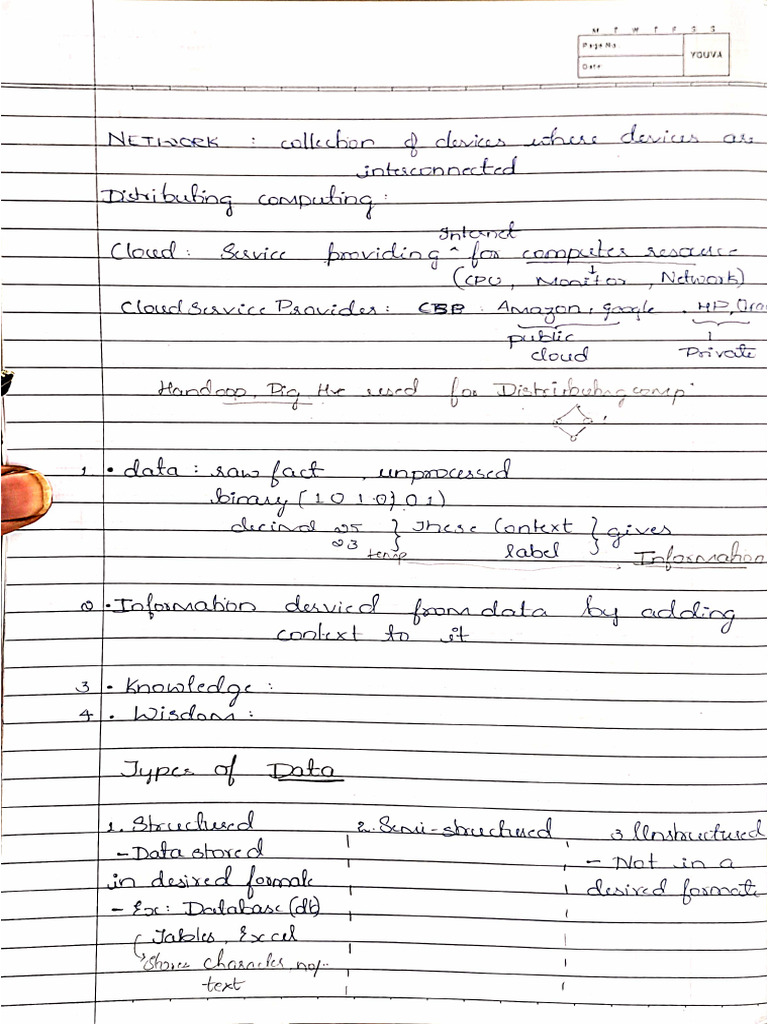 M T W T F S S
Page No.
Date
YOUVA
NETWORK : collection of devices where devices are
interconnected
Distributing computing :
Internet
Cloud : Service providing ^ for computer resource
(CPU, Monitor, Network)
Cloud Service Provider : : Amazon, google, HP,
public
cloud
Private
Handoop, Pig, used for Distributing comp.
1 • data : raw fact, unprocessed
binary (1 0 1 0) 0 1)
decimal 25 } These Context } gives
23
temp label Information
2 • Information dervied from data by adding
context to it
3 • Knowledge :
4 • Wisdom :
Types of Data
1. Structured 2. Semi-structured 3 Unstructured
- Data stored - Not in a
in desired formate desired formate
- Ex : Database (db)
Tables, Excel
Stores character, no.
text